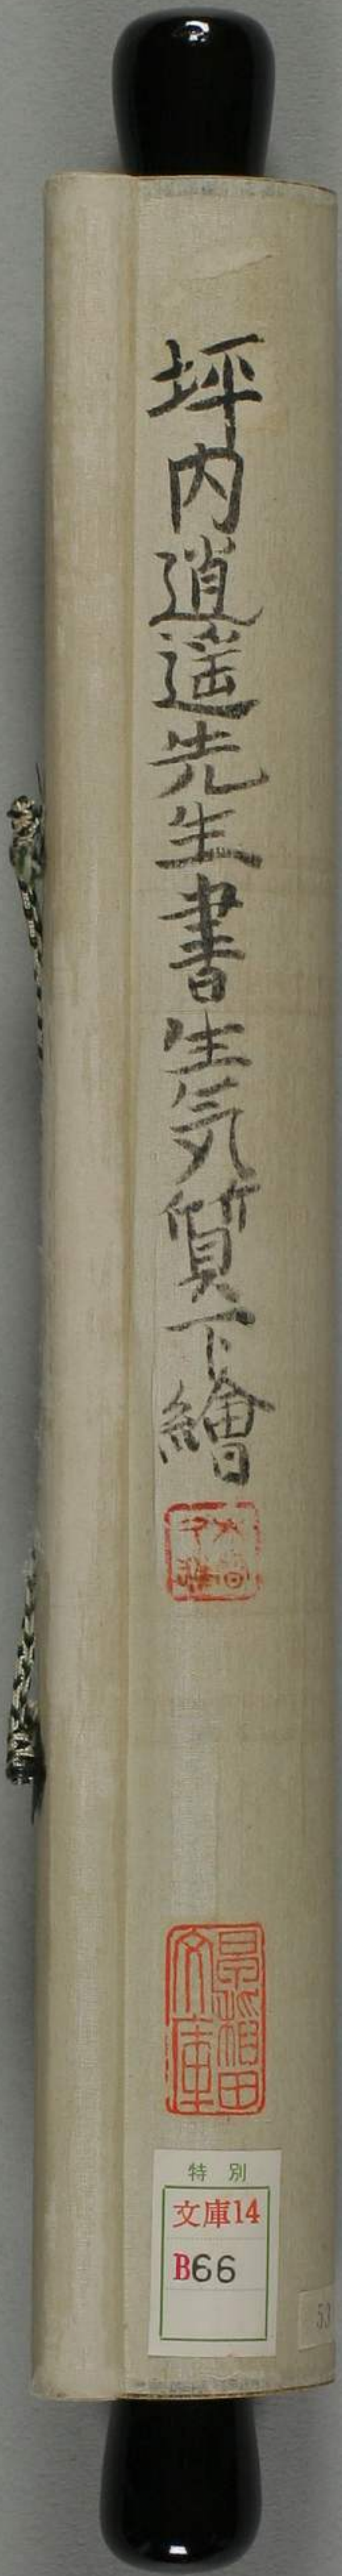 坪内逍遥先生書生気質下繪
文庫
特別
文庫14
B66
53